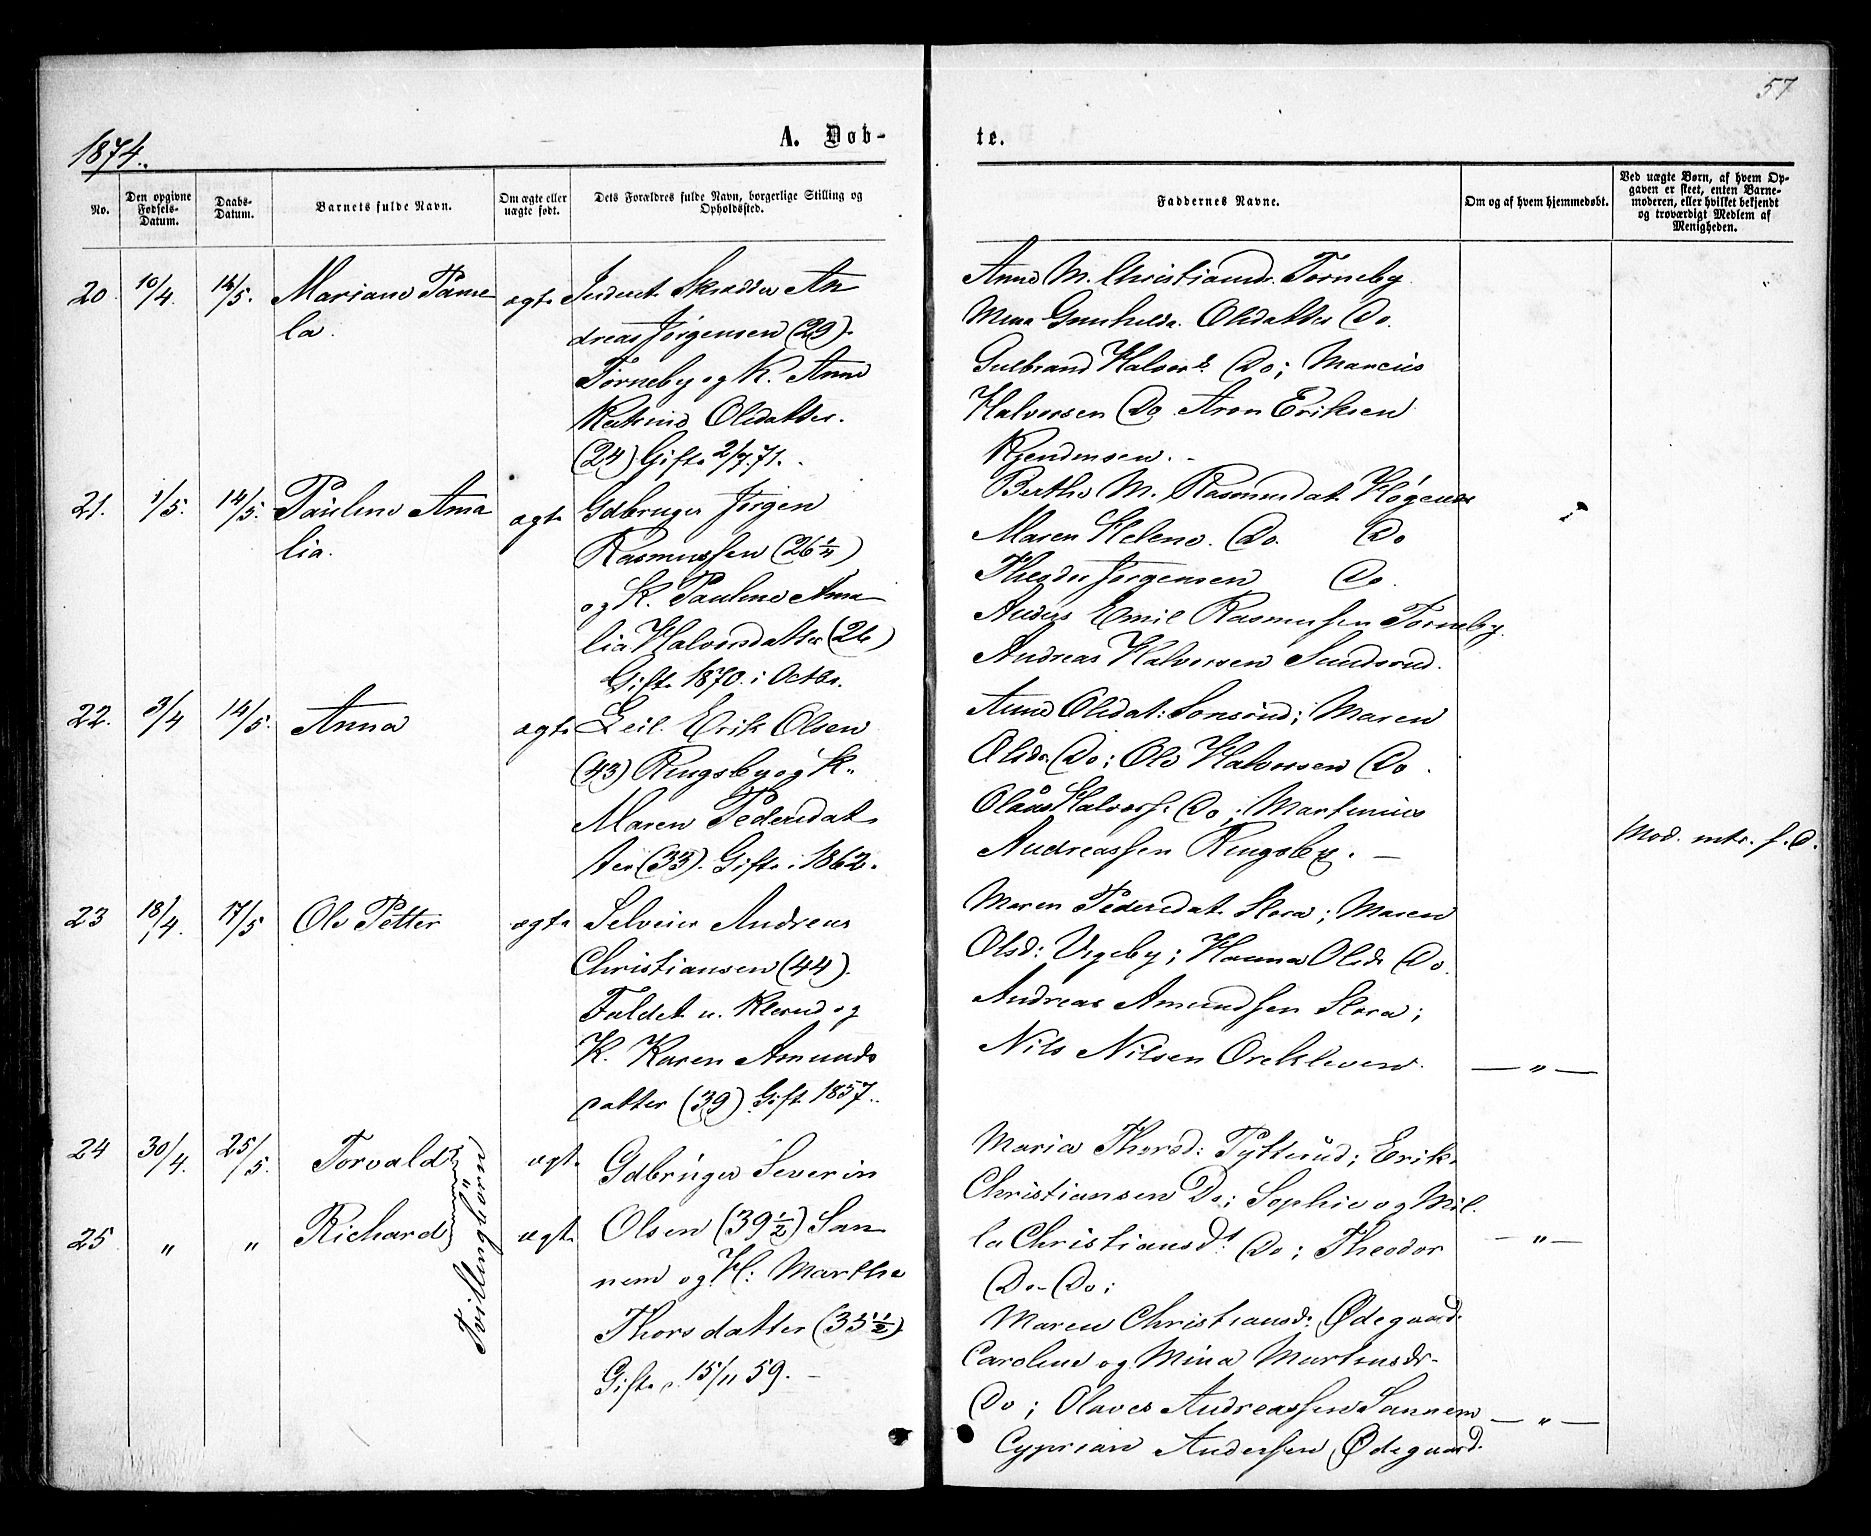 57
1874.
A. Døb-
te.
No.
Den opgivne Fødsels-Datum.
Daabs-Datum.
Barnets fulde Navn.
Om ægte eller uægte født.
Dets Forældres fulde Navn, borgerlige Stilling og Opholdssted.
Faddernes Navne.
Om og af hvem hjemmedøbt.
Ved uægte Børn, af hvem Opgaven er skeet, enten Barnemoderen, eller hvilket bekjendt og troværdigt Medlem af Menigheden.
20. 10/4. 14/5. Mariane Pame
la.
ægte
Inderst Skrædder An
dreas Jørgensen (29).
Torneby og K. Anne
Olsdatter.
(24) Gifte 2/7.71.
Anne M. Christiansd. Torneby
Mina Gunhilda Olsdatter Do.
Gulbrand Halvors. Do; Marcus
Halvorsen Do. Aron Eriksen
21. 1/5. 14/5. Pauline Ama
lia.
ægte
Gdbruger Jørgen
Rasmussen (26 1/4)
og K. Pauline Ama
lia Halvorsdatter (26)
Gifte 1870 i Octbr.
Berthe M. Rasmusdat.
Maren Helene. Do. Do
Theodor Jørgensen Do.
Anders Emil Rasmussen Torneby.
Andreas Halvorsen Sundsrud.
22. 3/4 14/5. Anna
ægte
Leil. Erik Olsen
(43) Ringsby og K.
Maren Pedersdat
ter (33). Gifte i 1862.
Anne Olsdat: ; Maren
Olsdr. Do; Ole Halvorsen Do.
Olaus Halvors. Do; Martinius
Andreassen Ringsby. —
Mod. mtr. f. D.
23 18/4. 17/5 Ole Petter
ægte
Selveier Andreas
Christiansen (44).
Faldet u. Klerud og
K. Karen Amunds
datter (39) Gift 1857.
Maren Pedersdat. Slora; Maren
Olsd: Vegeby; Hanna Olsdr. Do.
Andreas Amundsen Slora;
Nils Nilsen Orekleven.
— " —
24 30/4. 25/5. Torvald
ægte
Tvillingbörn
Gdbruger Severin
25. " " Richard
ægte
Olsen (39 1/2) San
nem og H: Marthe
Thorsdatter (35 1/2)
Gifte 15/11 59. —
Maria Thorsd: Pytterud; Erik
Christiansen Do; Sophie og Mil
la Christiansdt. Do; Theodor
Do- Do;
— " —
Maren Christiansd: Ødegaard.
Caroline og Mina Martinsdr-
Do; Olaves Andreassen Sannem
— " —
Cyprian Andersen Ødegaard.